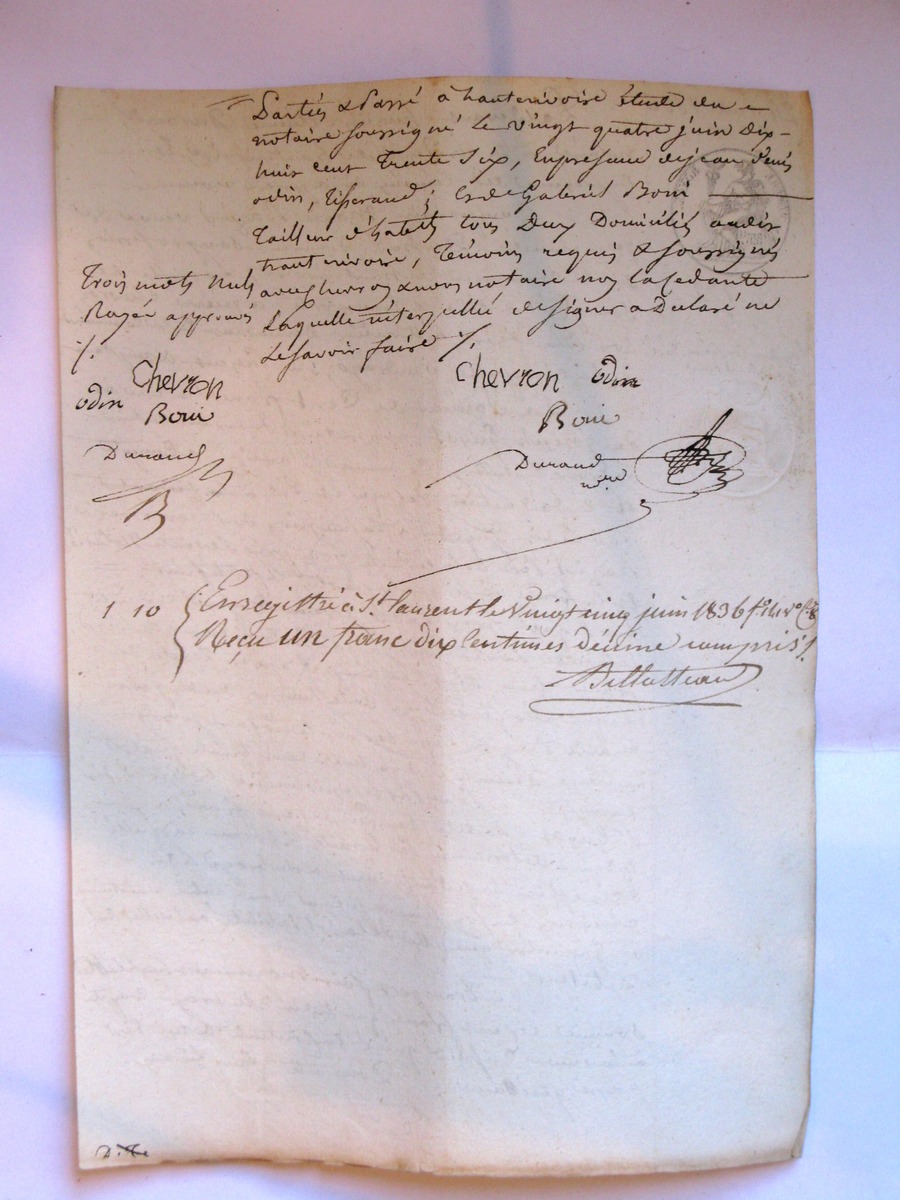 Parties & Passé à hauterivoire Etude du
notaire soussigné Le vingt quatre juin Dix-
huit cent Trente Six, En presence de jean Denis
odin, Tisserand ; Et de Gabriel Boni
Tailleur d'habits tous Deux Domiciliés audit
hauterivoire, Témoins requis & soussignés
avec chevron & nous notaire non la Cedante
Laquelle interpellée de signer a Declaré ne
Le savoir faire ./.
Trois mots nuls
Rayés approuvés
./.
Chevron
odin
Boni
Durand
B
Chevron odin
Boni
Durand
nre
1 10 Enregistré à St. laurent le Vingt cinq juin 1836 fo
Reçu un franc dix Centimes décime compris ./.